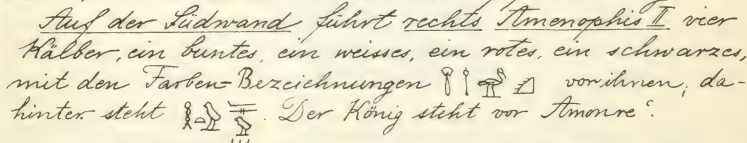 Auf der Südwand führt rechts Amenophis II vier
Kälber, ein buntes, ein weisses, ein rotes, ein schwarzes,
mit den Farben=Bezeichnungen vor ihnen, da-
hinter steht . Der König steht vor Amonreʿ.